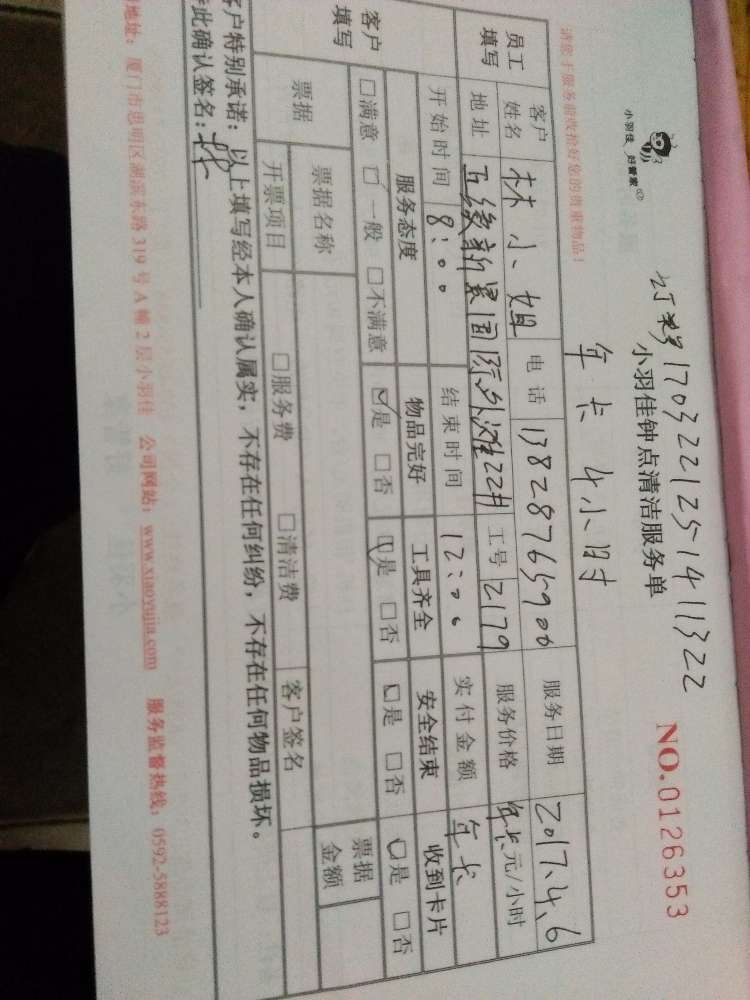 小羽佳 好管家
订单号 170322125141322
小羽佳钟点清洁服务单
NO.0126353
请您于服务前收拾好您的贵重物品!
年卡 4小时
员工填写 客户姓名 林小姐 电话 13828765900 服务日期 2017.4.6
地址 五缘新景国际外滩22# 工号 2179 服务价格 年卡元/小时
开始时间 8:00 结束时间 12:00 实付金额 年卡
客户填写 服务态度 物品完好 工具齐全 安全结束 收到卡片
□满意 □一般 □不满意 ☑是 □否 ☑是 □否 □是 □否 □是 □否
票据 票据名称 票据金额
开票项目 □服务费 □清洁费 客户签名
客户特别承诺:以上填写经本人确认属实,不存在任何纠纷,不存在任何物品损坏。
此确认签名:林
地址:厦门市思明区湖滨东路319号A幢2层小羽佳 公司网站:www.xiaoyujia.com 服务监督热线:0592-5888123